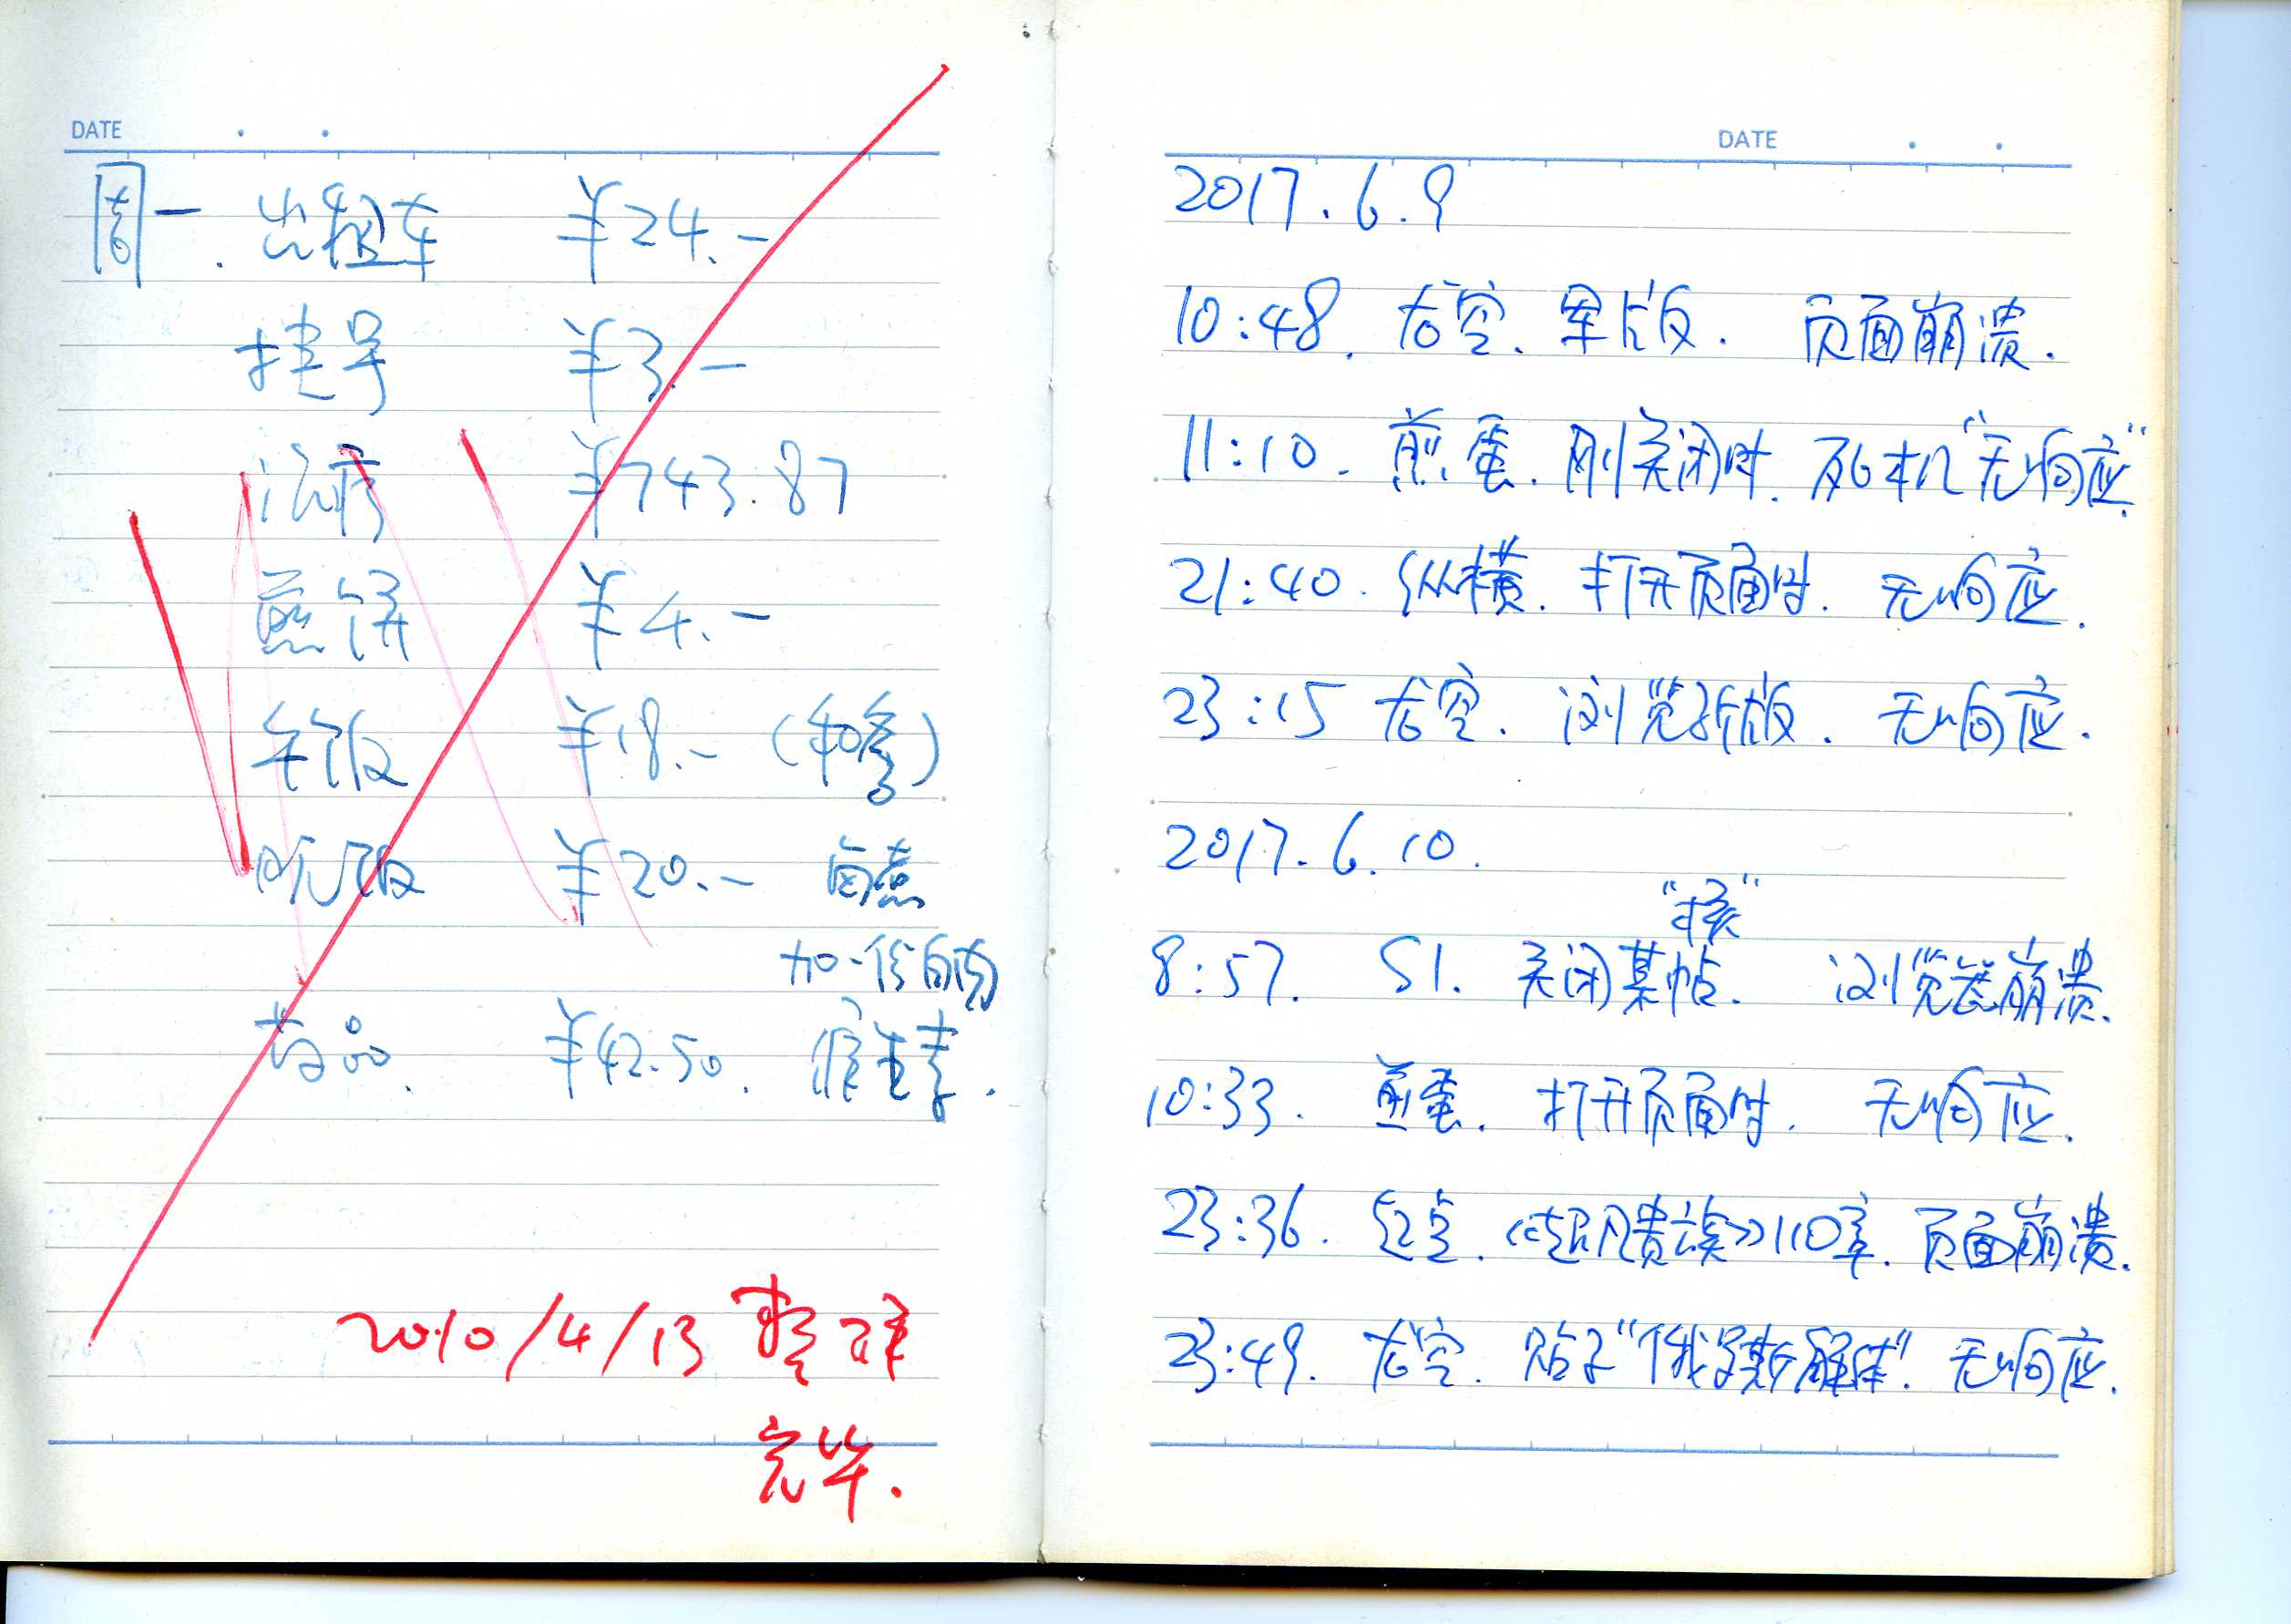 DATE
周一. 出租车 ¥24.-
挂号 ¥3.-
治疗 ¥743.87
煎饼 ¥4.-
午饭 ¥18.- (和合)
晚饭 ¥20.- 卤煮
加一份卤肠
药品. ¥42.50. 维生素.
2010/4/13 整理
完毕.
DATE
2017.6.9
10:48. 龙空. 军版. 页面崩溃.
11:10. 煎蛋. 刚关闭时. 死机"无响应"
21:40. 纵横. 打开页面时. 无响应.
23:15 龙空. 浏览新版. 无响应.
2017.6.10.
"核"
8:57. S1. 关闭某帖. 浏览器崩溃.
10:33. 煎蛋. 打开页面时. 无响应.
23:36. 起点. 《超凡贵族》110章. 页面崩溃.
23:49. 龙空. 贴子"俄罗斯解体". 无响应.